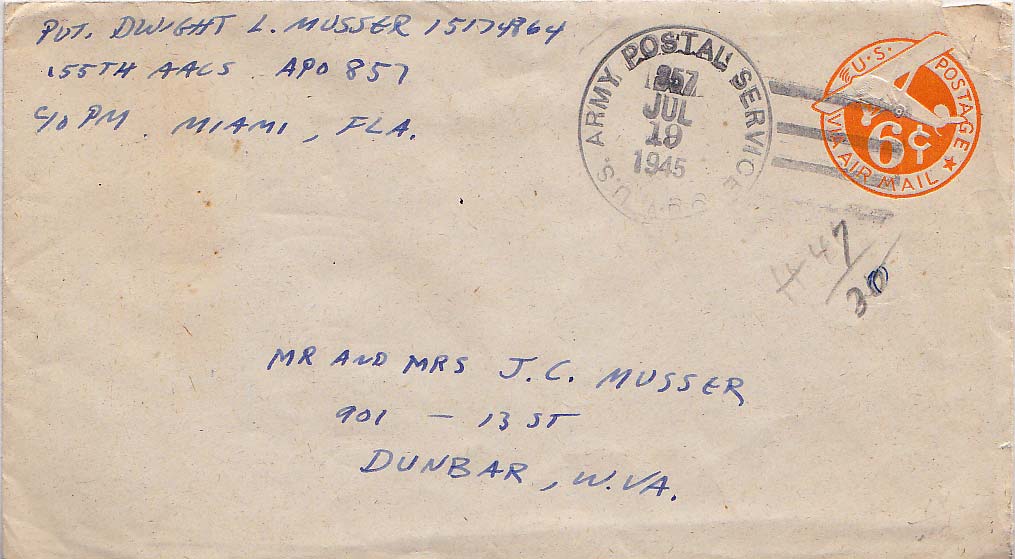 PVT. DWIGHT L. MUSSER 15174864
155TH AACS APO 857
C/O PM. MIAMI, FLA.
U.S. ARMY POSTAL SERVICE
857
JUL
19
1945
U.S. POSTAGE
6¢
VIA AIR MAIL
47
30
MR AND MRS J.C. MUSSER
901 - 13 ST
DUNBAR, W.VA.